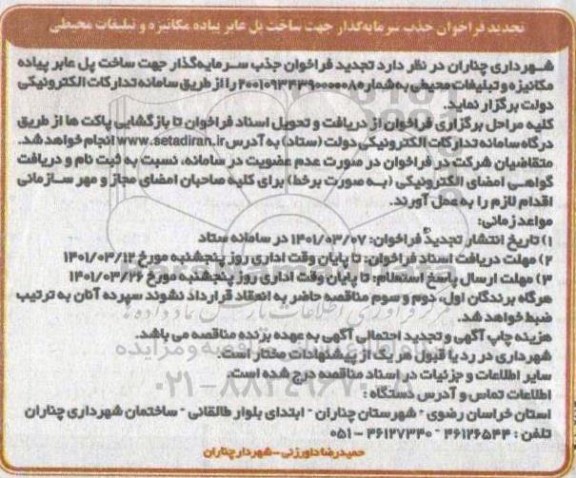 تجدید فراخوان جذب سرمایه‌گذار جهت ساخت پل عابر پیاده مکانیزه و تبلیغات محیطی
شهرداری چناران در نظر دارد تجدید فراخوان جذب سرمایه‌گذار جهت ساخت پل عابر پیاده
مکانیزه و تبلیغات محیطی به شماره ۲۰۰۱۰۹۳۴۳۹۰۰۰۰۰۸ را از طریق سامانه تدارکات الکترونیکی
دولت برگزار نماید.
کلیه مراحل برگزاری فراخوان از دریافت و تحویل اسناد فراخوان تا بازگشایی پاکت ها از طریق
درگاه سامانه تدارکات الکترونیکی دولت (ستاد) به آدرس www.setadiran.ir انجام خواهد شد.
متقاضیان شرکت در فراخوان در صورت عدم عضویت در سامانه، نسبت به ثبت نام و دریافت
گواهی امضای الکترونیکی (به صورت برخط) برای کلیه صاحبان امضای مجاز و مهر سازمانی
اقدام لازم را به عمل آورند.
مواعد زمانی:
۱) تاریخ انتشار تجدید فراخوان: ۱۴۰۱/۰۳/۰۷ در سامانه ستاد
۲) مهلت دریافت اسناد فراخوان: تا پایان وقت اداری روز پنجشنبه مورخ ۱۴۰۱/۰۳/۱۲
۳) مهلت ارسال پاسخ استعلام: تا پایان وقت اداری روز پنجشنبه مورخ ۱۴۰۱/۰۳/۲۶
هرگاه برندگان اول، دوم و سوم مناقصه حاضر به انعقاد قرارداد نشوند سپرده آنان به ترتیب
ضبط خواهد شد.
هزینه چاپ آگهی و تجدید احتمالی آگهی به عهده برنده مناقصه می باشد.
شهرداری در رد یا قبول هر یک از پیشنهادات مختار است.
سایر اطلاعات و جزئیات در اسناد مناقصه درج شده است.
اطلاعات تماس و آدرس دستگاه :
استان خراسان رضوی - شهرستان چناران - ابتدای بلوار طالقانی - ساختمان شهرداری چناران
تلفن : ۴۶۱۲۶۵۴۴ - ۴۶۱۲۷۳۴۰ - ۰۵۱
حمیدرضا داورزنی - شهردار چناران